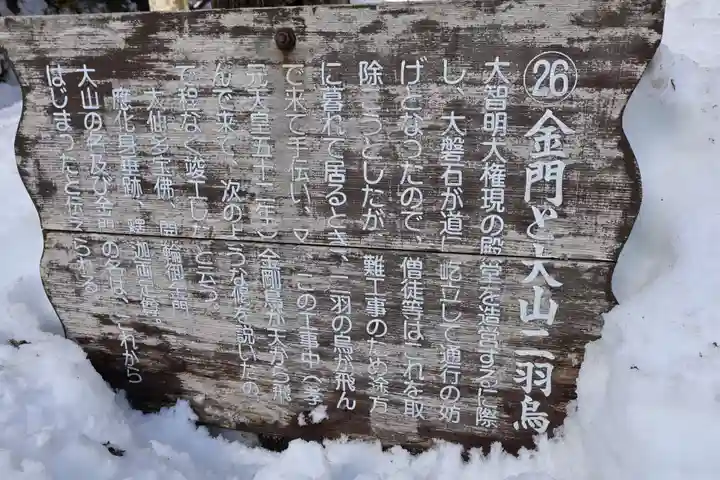 ㉖ 金門と大山二羽烏
大智明大権現の殿堂を造営するに際
し、大磐石が道に屹立して通行の妨
げとなったので、僧徒等はこれを取
除こうとしたが、難工事のため途方
に暮れて居るとき、二羽の烏が飛ん
で来て手伝い、又、この工事中(孝
元天皇五十二年)金剛鳥が天から飛
んで来て、次のような偈を説いたの
で程なく竣工したと云う。
大仙多宝佛、関鑰御金門
應化身垂跡、釋迦両足尊
大山の名及び金門の名は、これから
はじまったと伝えられる